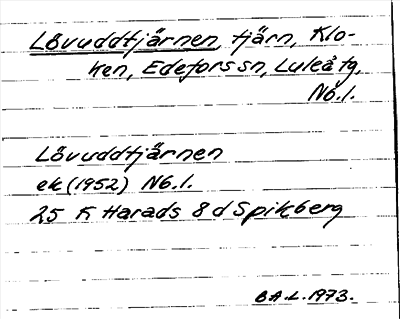 Lövuddtjärnen, tjärn, Klo-
ken, Edefors sn, Luleå tg,
Nb.l.
Lövuddtjärnen
ek (1952) Nb.l.
25 K Harads 8 d Spikberg
BA-L. 1973.